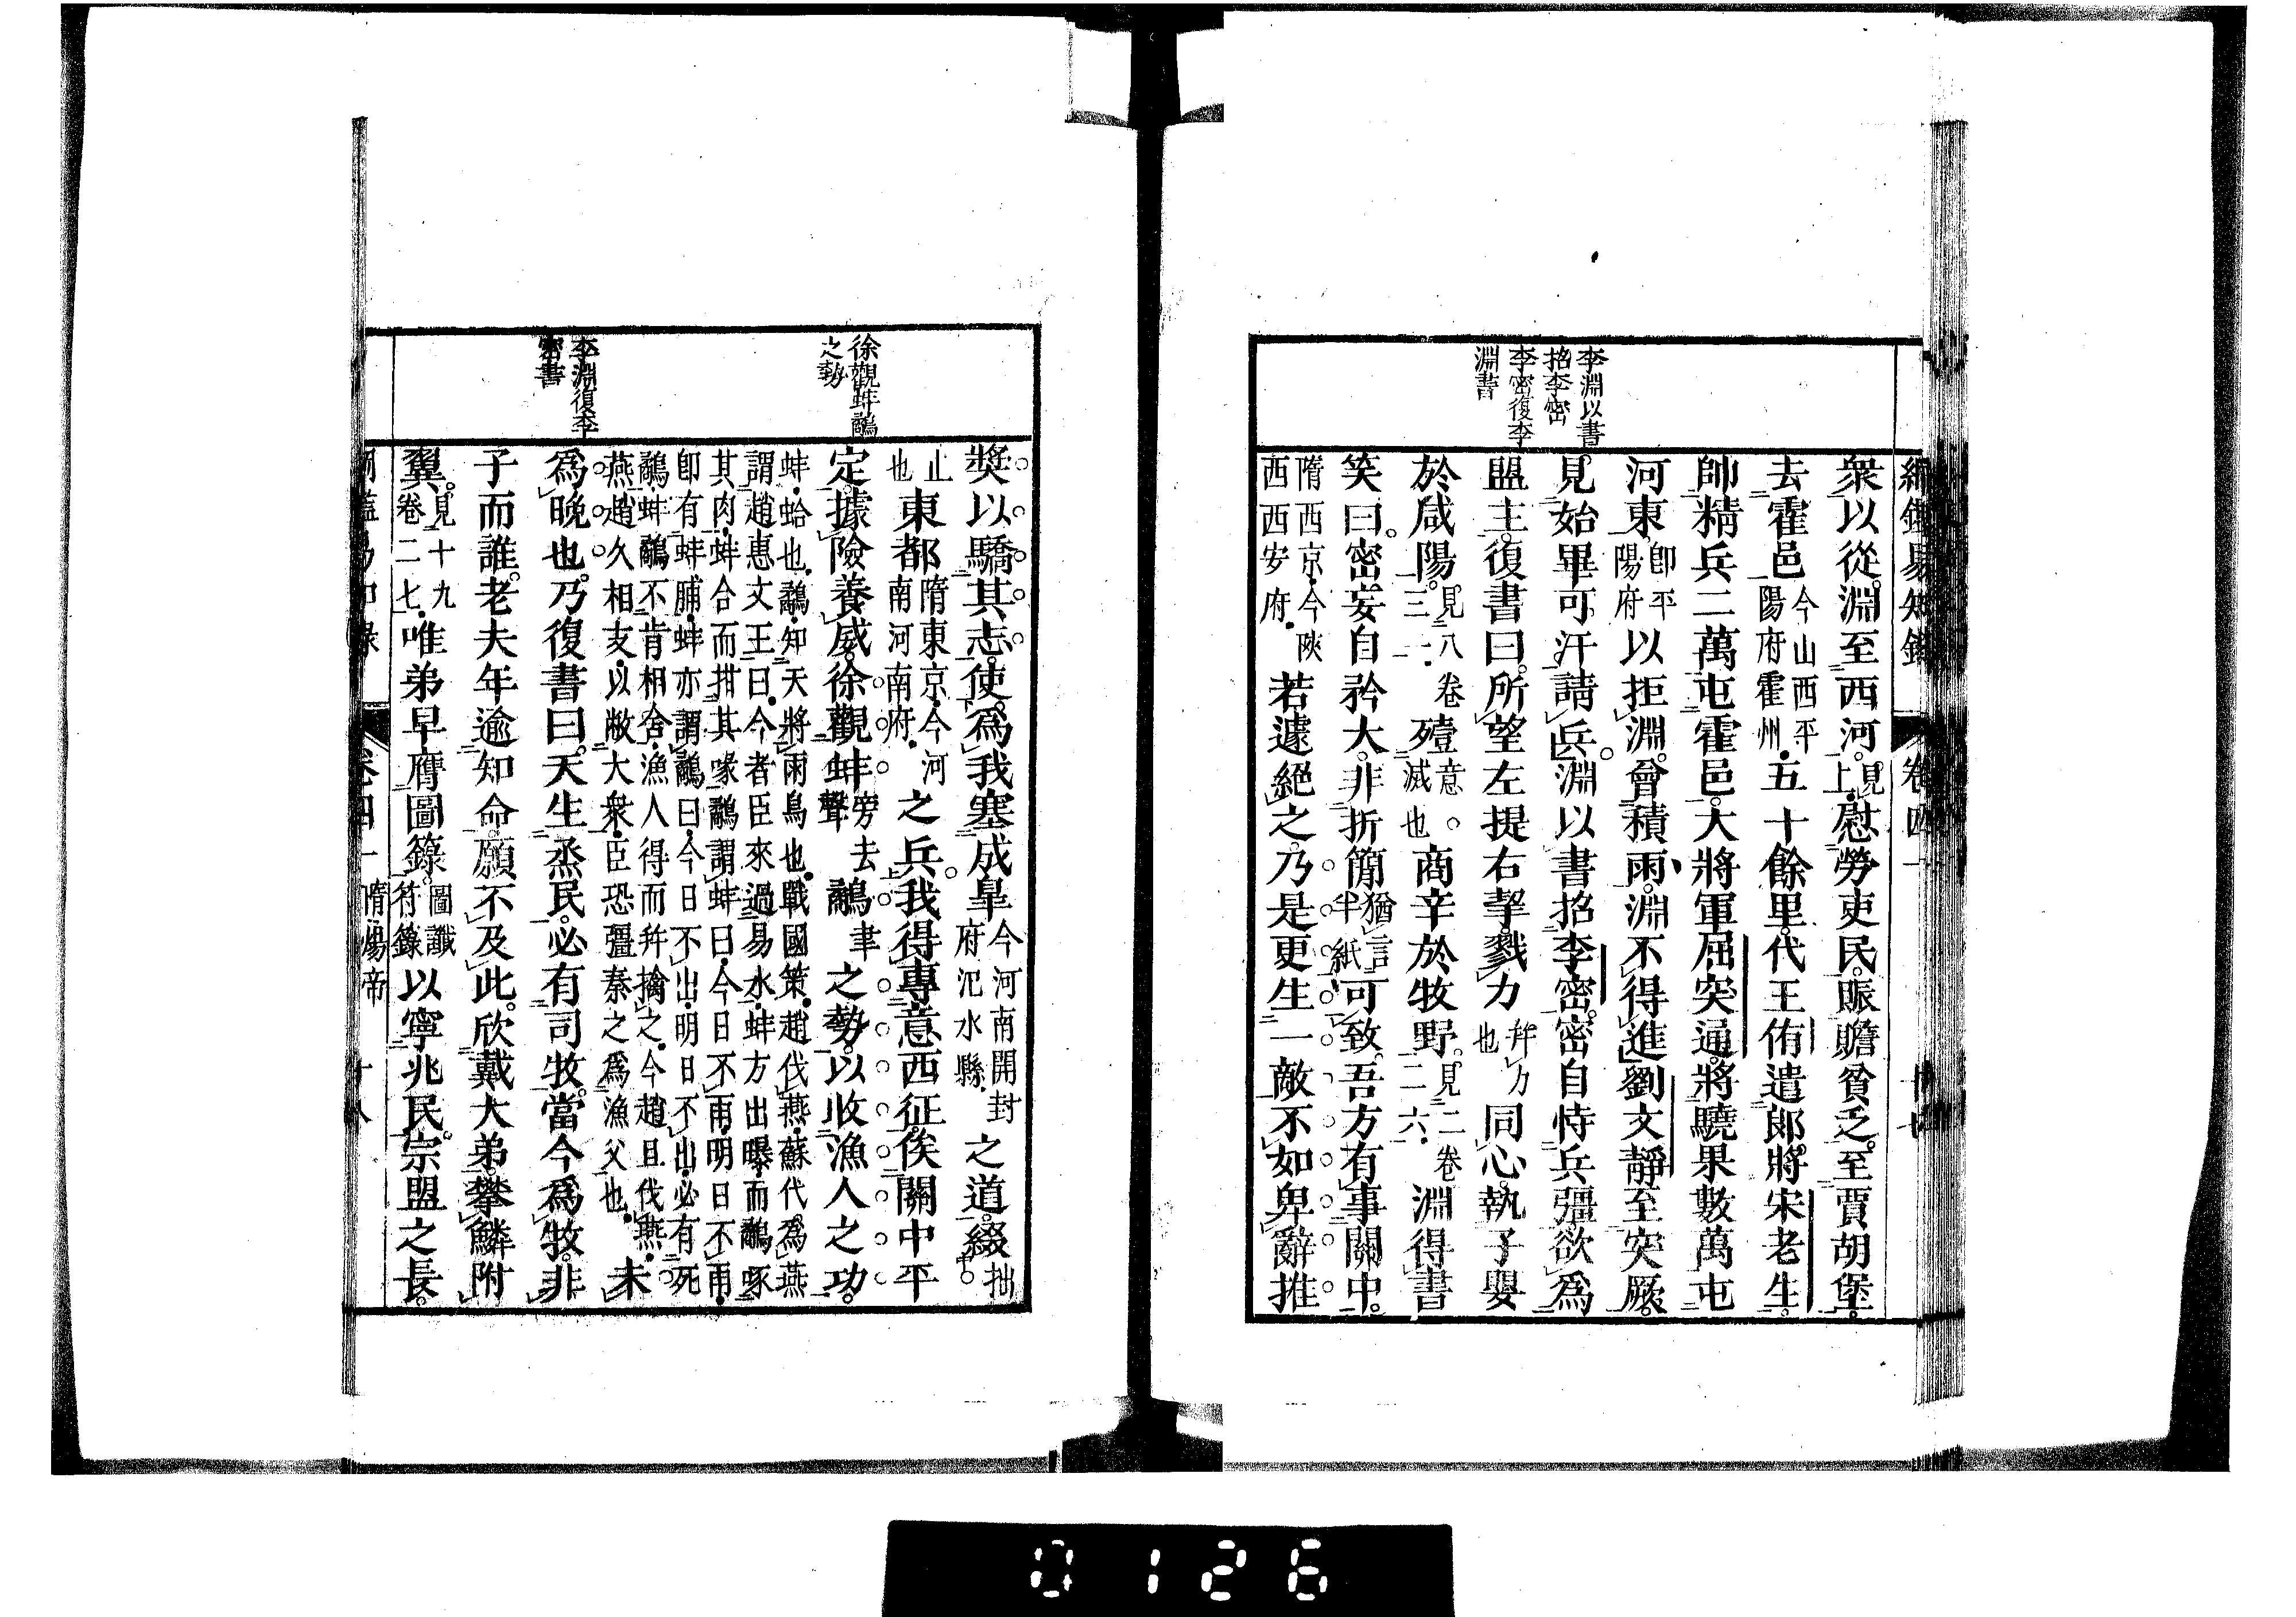 綱鑑易知錄 卷四一 十七
李淵以書
招李密
李密復李
淵書
衆以從淵至西河見上慰勞吏民賑贍貧乏至賈胡堡
去霍邑今山西平陽府霍州五十餘里代王侑遣郎將宋老生
帥精兵二萬屯霍邑大將軍屈突通將驍果數萬屯
河東即平陽府以拒淵會積雨淵不得進劉文靜至突厥
見始畢可汗請兵淵以書招李密密自恃兵彊欲爲
盟主復書曰所望左提右挈戮力幷力也同心執子嬰
於咸陽見八卷三一殪意滅也商辛於牧野見二卷二六淵得書
笑曰密妄自矜大非折簡猶言半紙可致吾方有事關中
隋西京今陝西西安府若遽絕之乃是更生一敵不如卑辭推
奬以驕其志使爲我塞成皐今河南開封府汜水縣之道綴拙
止也東都隋東京今河南河南府之兵我得專意西征俟關中平
定據險養威徐觀蚌旁去聲鷸聿之勢以收漁人之功
蚌蛤也鷸知天將雨鳥也戰國策趙伐燕蘇代爲燕
謂趙惠文王曰今者臣來過易水蚌方出曝而鷸啄
其肉蚌合而拑其喙鷸謂蚌曰今日不雨明日不雨
卽有蚌脯蚌亦謂鷸曰今日不出明日不出必有死
鷸蚌鷸不肯相舍漁人得而幷擒之今趙且伐燕
燕趙久相支以敝大衆臣恐彊秦之爲漁父也未
爲晚也乃復書曰天生烝民必有司牧當今爲牧非
子而誰老夫年逾知命願不及此欣戴大弟攀鱗附
翼見十九卷二七唯弟早膺圖籙圖讖符籙以寧兆民宗盟之長
徐觀蚌鷸
之勢
李淵復李
密書
卷四一 隋煬帝 十八
0126